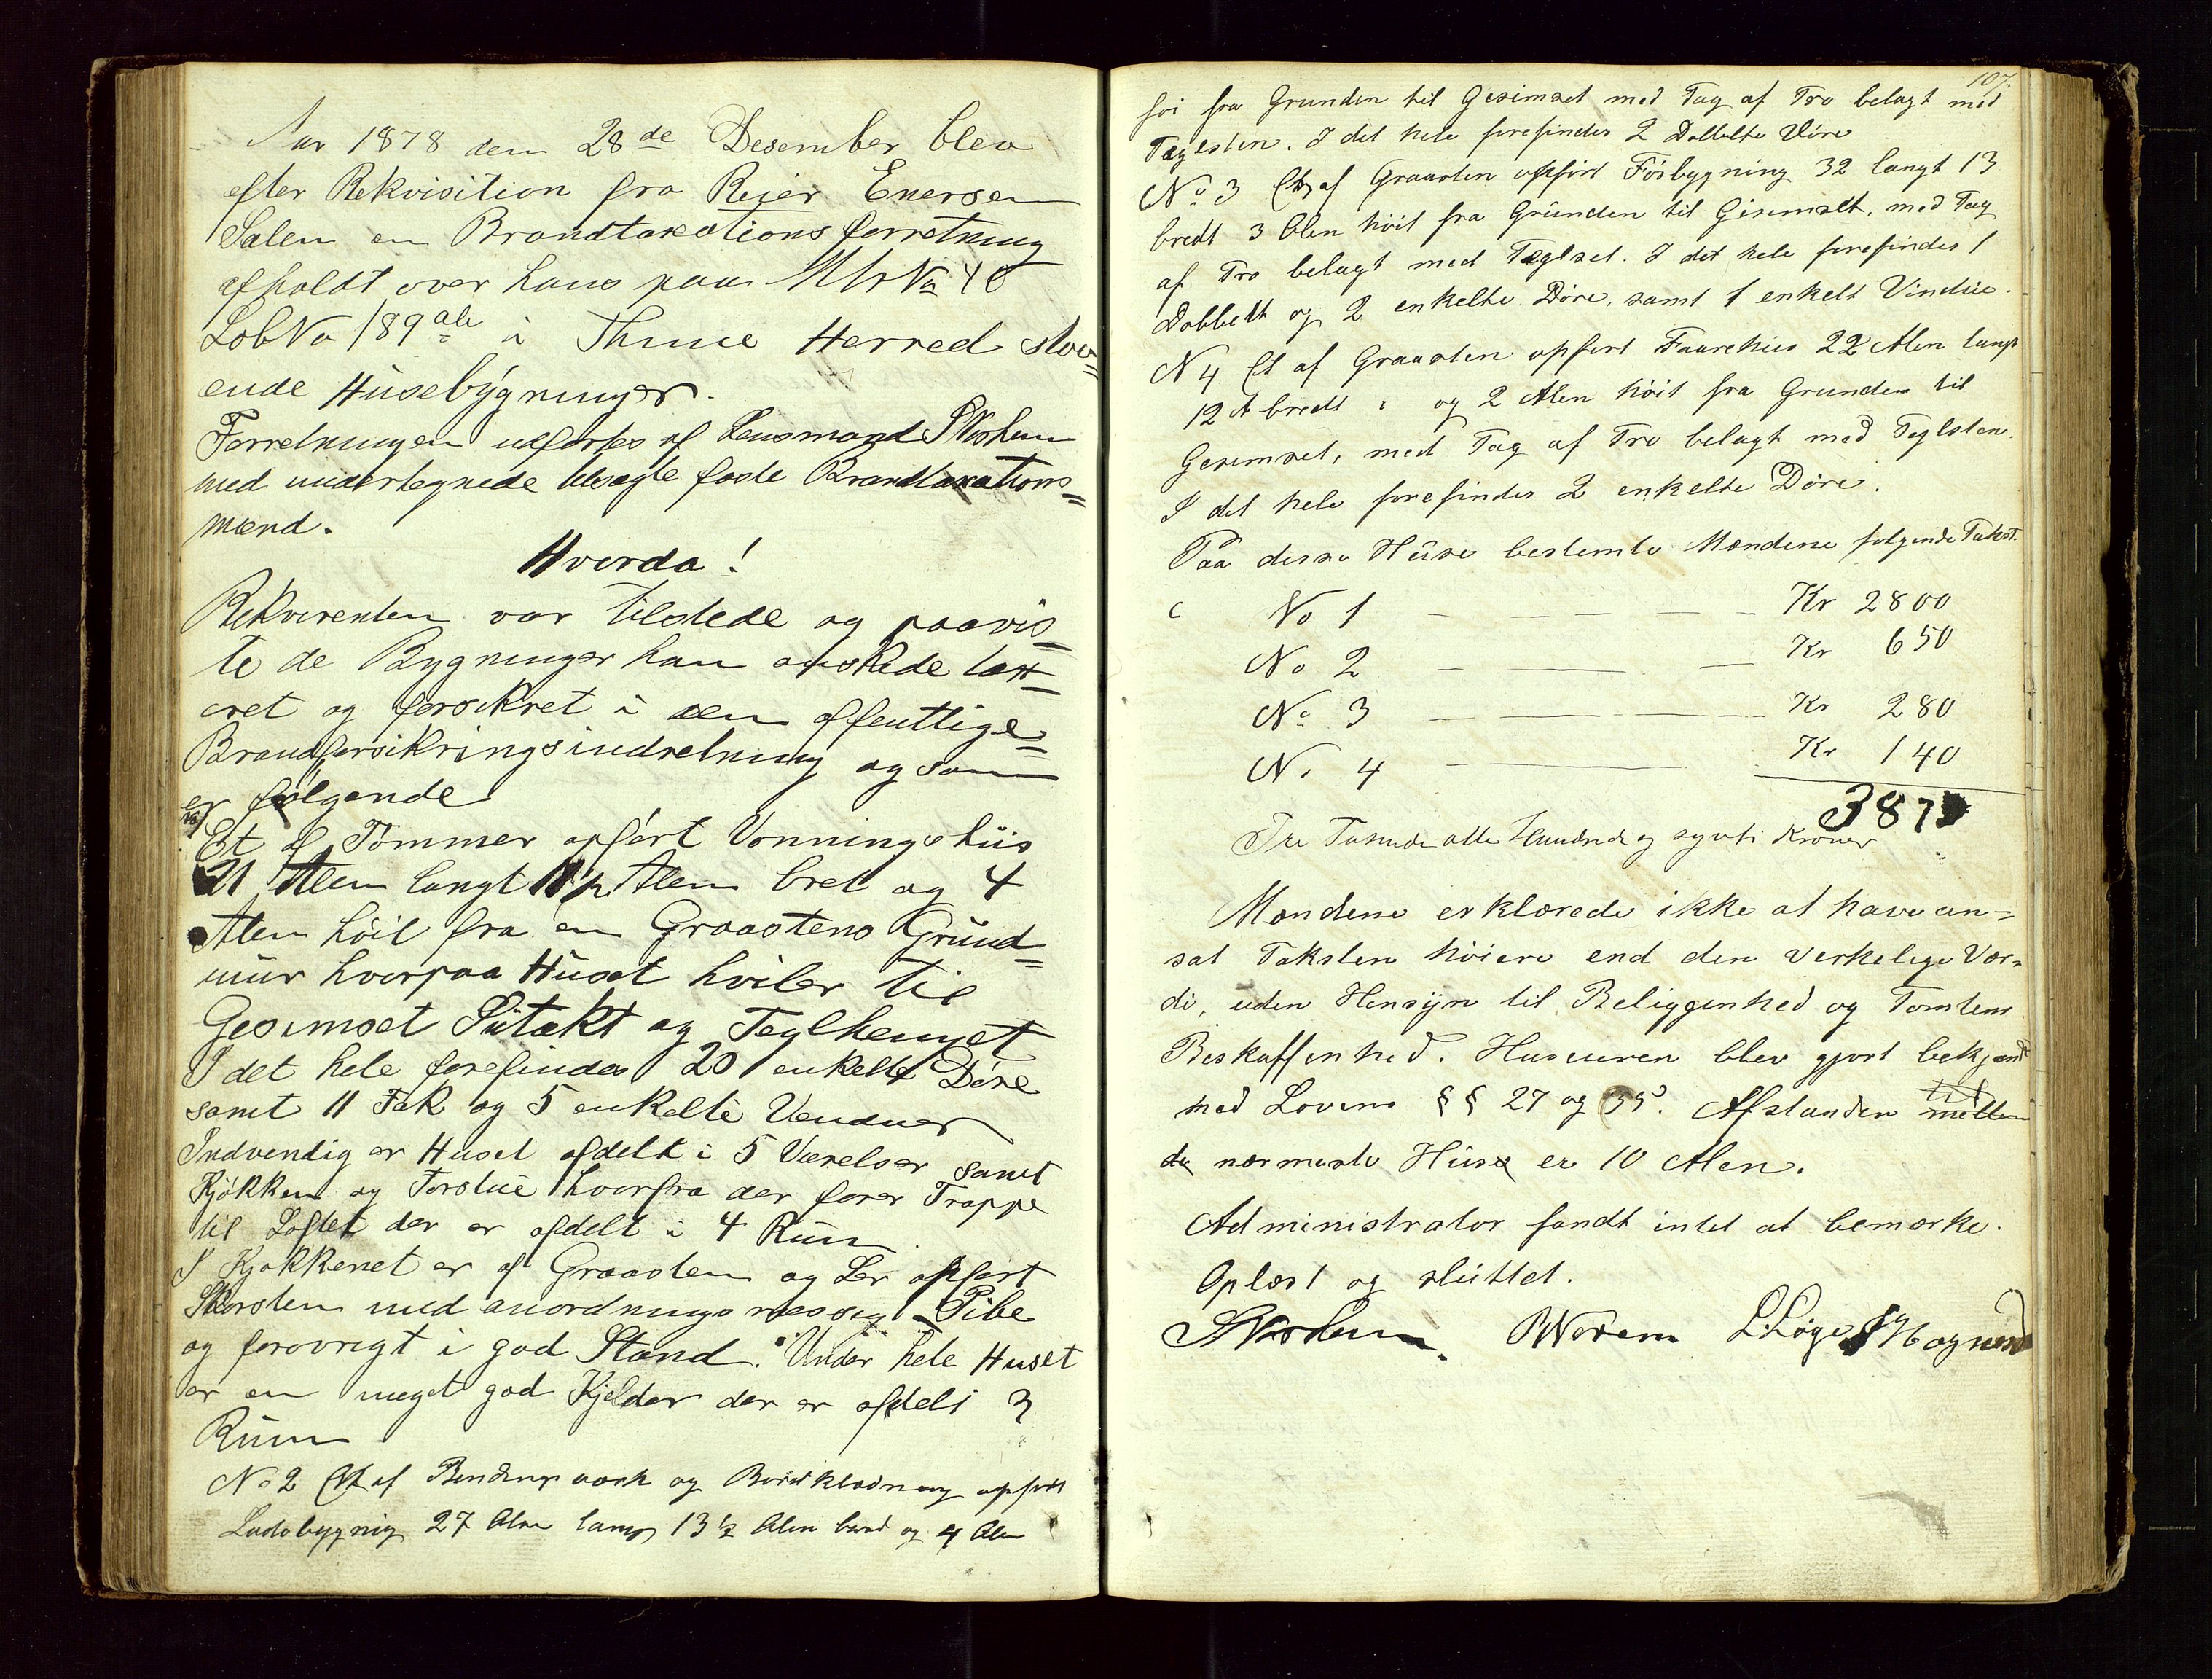 Aar 1878 den 28de Desember blev
efter Rekvisition fra Reier Enersen
Salen en Brandtaxationsforretning
afholdt over hans paa MtrNo 48
LøbNo 189 alb i Thime Herred stav=
ende Husebygninger.
Forretningen udførtes af Lensmand
med undertegnede tilsagte faste Brandtaxations=
mænd.
Hvorda!
Rekvirenten var tilstede og paavis=
te de Bygninger han ønskede tax=
eret og forsikret i den offentlige=
Brandforsikringsindretning og som
er følgende
No 1
Et af Tømmer opført Vonningshus
21 Alen langt 11 1/2 Alen bret og 4
Alen høit fra en Graastens Grund=
mur hvorpaa Huset hviler til
Gesimset Sutækt og Teglhenget
I det hele forefindes 20 enkelte Døre
samt 11 Fak og 5 enkelte Venduer
Indvendig er Huset afdelt i 5 Værelser samt
Kjøkken og Forstue hvorfra der fører Trappe
til Loftet der er afdelt i 4 Rum
I Kjøkkenet er af Graasten og Ler opført
Skorsten med anordningsmessig Pibe
og forøvrigt i god Stand. Under hele Huset
er en meget god Kjelder der er afdelt 3
Rum
No 2 Et af Bindingsværk og Bordklædning opført
Ladebygnig 27 Alen lang 13 1/2 Alen bred og 4 Alen
107.
høi fra Grunden til Gesimset med Tag af Tro belagt med
Tæglsten. I det hele forefindes 2 Dobbelte Døre
No 3 Et af Graasten opført Føsbygning 32 langt 13
bredt 3 Alen høit fra Grunden til Gisemset, med Tag
af Tro belagt med Tæglset. I det hele forefindes 1
Dobbelt og 2 enkelte Døre, samt 1 enkelt Vindue.
N 4 Et af Graasten opført Faarehus 22 Alen langt
12 A bredt og 2 Alen høit fra Grunden til
Gesimset, med Tag af Tro belagt med Teglsten.
I det hele forefindes 2 enkelte Døre.
Paa disse Huse bestemte Mændene følgende Takst.
No 1 — — — — — Kr 2800
No 2 — — — Kr 650
No 3 — — — — Kr 280
No 4 — — Kr 140
3870
Tre Tusende otte Hundrede og sytti Kroner
Mændene erklærede ikke at have an=
sat Taksten høiere end den verkelige Vær=
di, uden Hensyn til Beliggenhed og Tomtens
Beskaffenhed. Huseieren blev gjort bekjændt
med Lovens § § 27 og 35. Afstanden mellem til
de nærmeste Huse er 10 Alen.
Administrator fandt intet at bemærke.
Oplæst og sluttet.